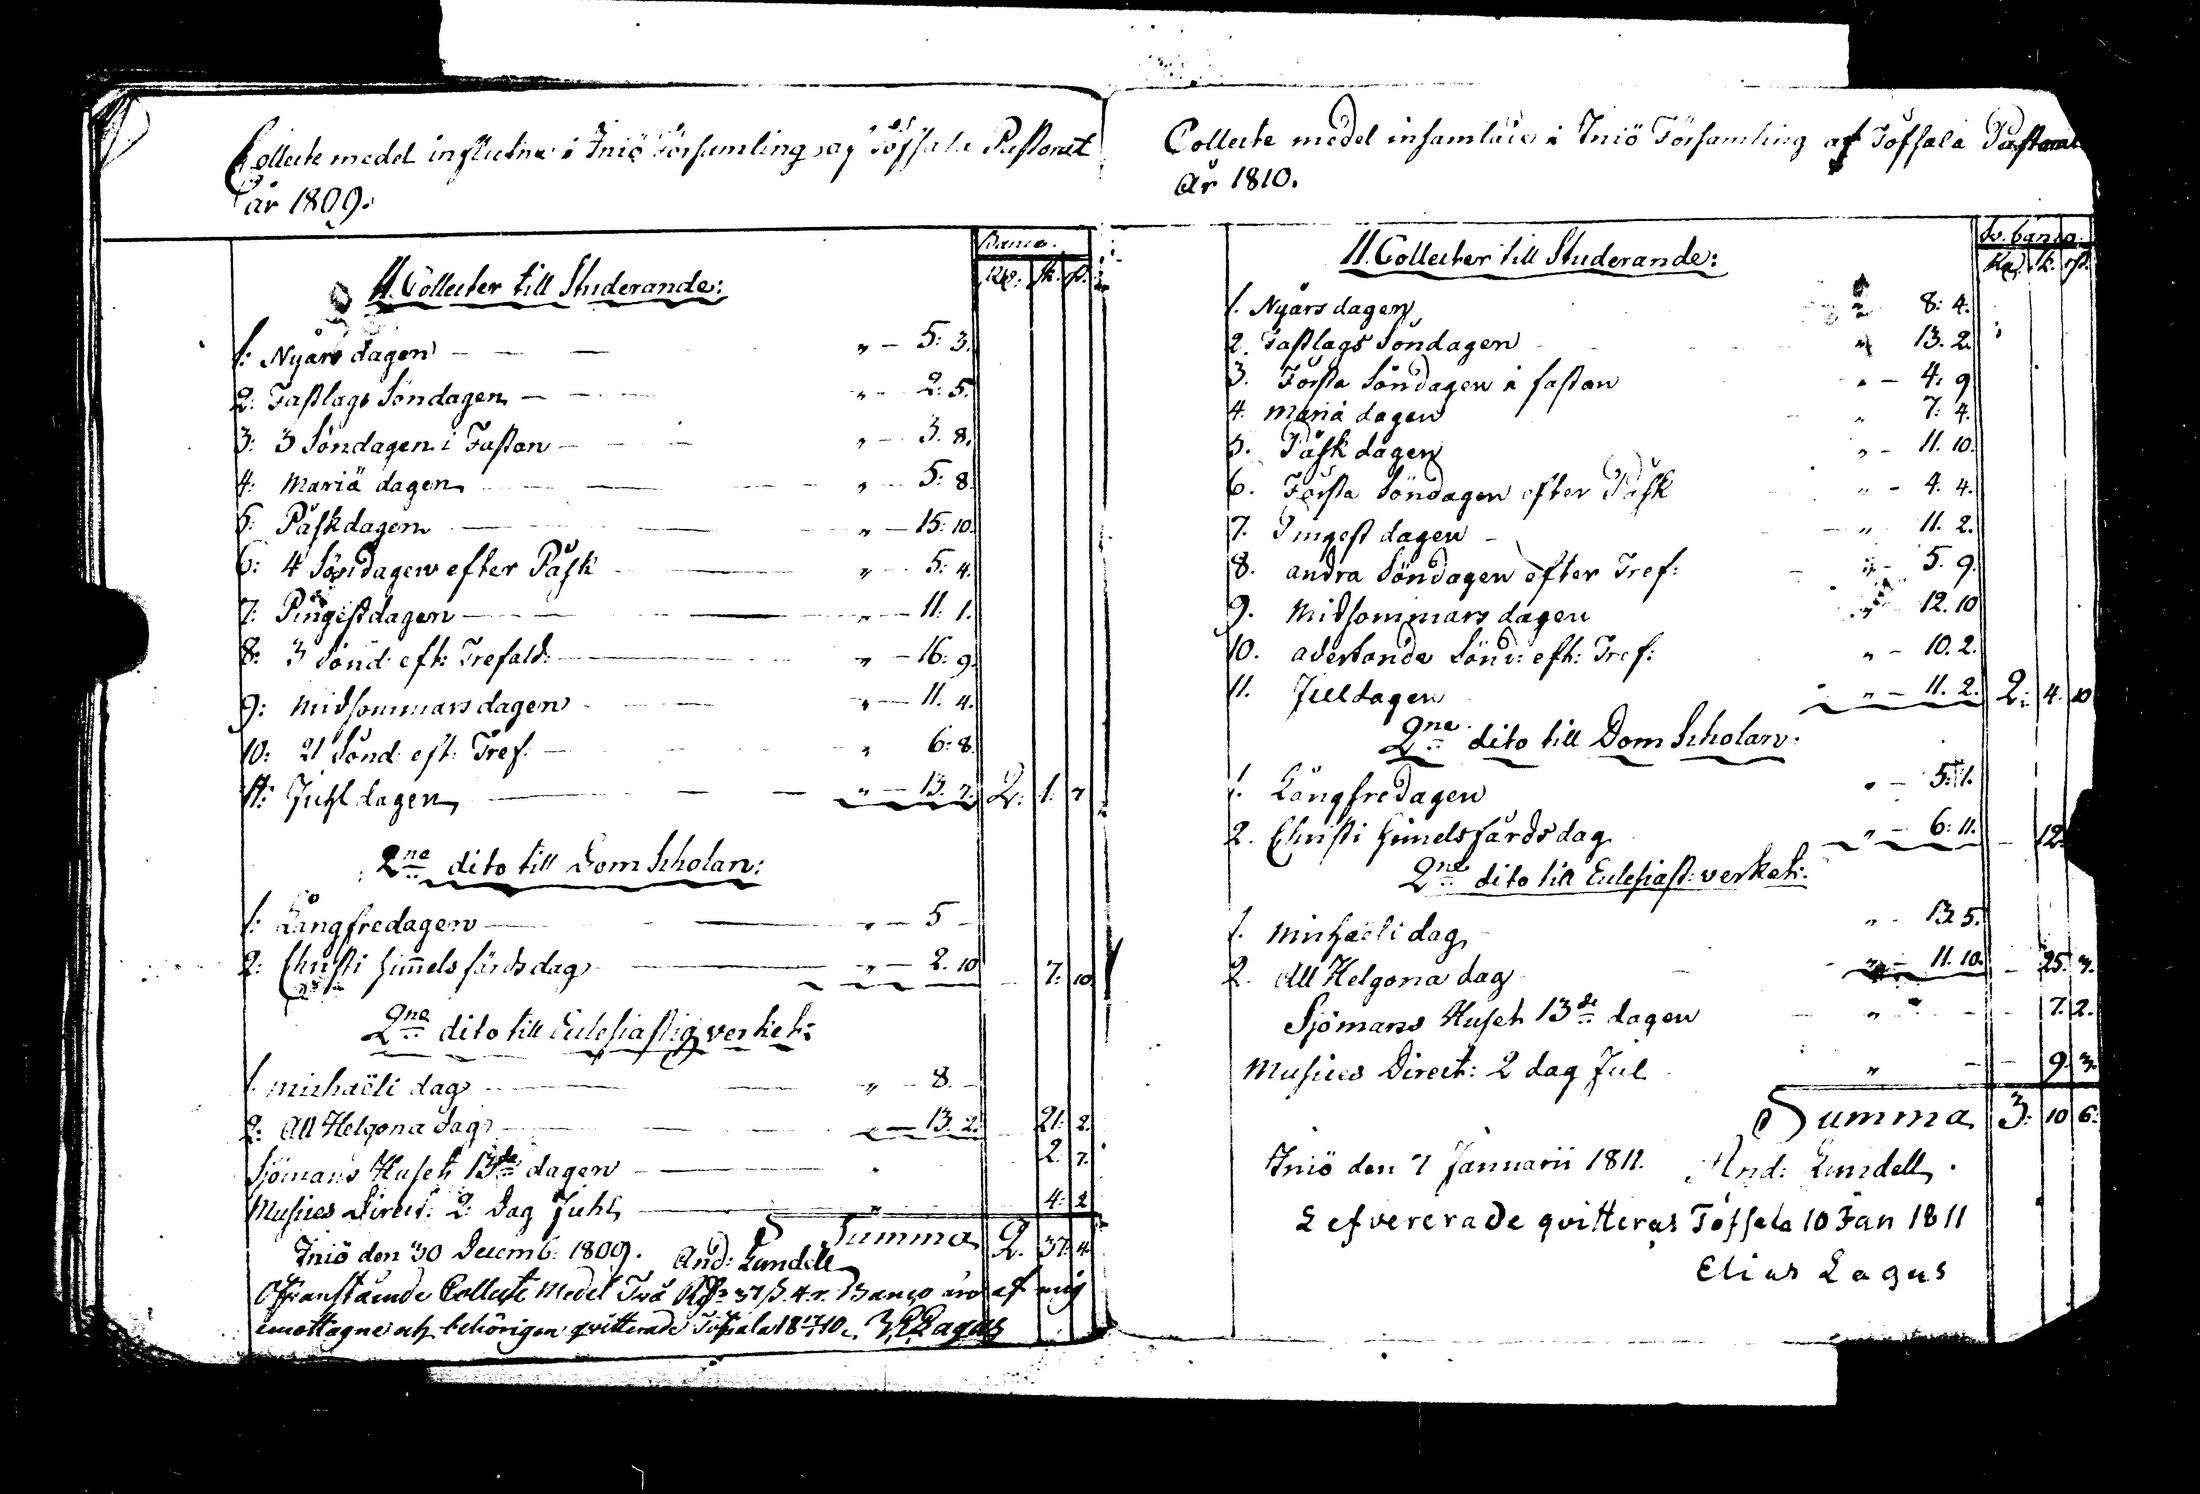 Collecte medel influtne i Iniö Församling af Töfsala Pastorat
år 1809.
Banco.
Rd: sk: rst:
11. Collecter till Studerande:
1: Nyårsdagen — — „ — 5: 3.
2: Fastlags Söndagen — — „ — 2: 5.
3: 3 Söndagen i Fastan — — „ — 3. 8.
4: Mariä dagen — — „ — 5: 8.
5: Påskdagen — — „ — 15: 10.
6: 4 Söndagen efter Påsk — — „ — 5: 4.
7: Pingestdagen — — „ — 11: 1.
8: 3 Sönd: eft: Trefald: — — „ — 16: 9.
9: Midsommarsdagen — — „ — 11. 4.
10: 21 Sönd: eft: Tref: — „ 6: 8.
11: Juhldagen — — „ — 13. 7. 2: 1: 7
2ne dito till Dom Scholan:
1: Långfredagen — — „ — 5 —
2: Christi Himmelsfärdsdag — „ — 2. 10 7: 10
2ne dito till Ecclesiastiq verket:
1. Michaëli dag — — „ — 8. —
2: All Helgona dag — — „ — 13. 2. 21: 2.
Sjömans Huset 13de dagen — — „ 2. 7.
Musices Direct: 2 Dag Juhl — „ 4: 2
Summa 2. 37. 4.
Iniö den 30 Decemb: 1809. And: Lundell
Ofvanstående Collecte Medel Två Rd 37 s. 4 r. Banco äro af mig
emottagne och behörigen qvitterade Töfsala 18 10. Lagus
Collecte medel insamlade i Iniö Församling af Töfsala Pastorat
År 1810.
Sv. banco.
Rd. sk: rst:
11. Collecter till Studerande:
1. Nyårsdagen „ 8: 4.
2. Fastlags Söndagen „ 13. 2.
3. Första Söndagen i fastan „ — 4: 9
4. Mariä dagen „ 7: 4.
5. Påsk dagen „ — 11. 10.
6. Första Söndagen efter Påsk „ — 4. 4.
7. Pingest dagen — „ 11. 2.
8. andra Söndagen efter Tref: „ — 5. 9.
9. Midsommars dagen „ 12. 10
10. adertonde Sönd: eft: Tref: „ — 10. 2.
11. Juldagen „ — 11. 2. 2: 4. 10
2ne dito till Dom Scholan.
1. Långfredagen „ — 5: 1.
2. Christi Himelsfärdsdag „ — 6: 11. — 12.
2ne dito till Ecclesiast: verket:
1. Michaëli dag „ — 13. 5.
2. All Helgona dag „ — 11. 10. — 25. 3.
Sjömans Huset 13de dagen — „ — 7. 2.
Musices Direct: 2 dag Jul „ — 9. 3.
Summa 3: 10 6:
Iniö den 7 Januarii 1811. And: Lundell.
Lefvererade qvitteras Töfsala 10 Jan 1811
Elias Lagus